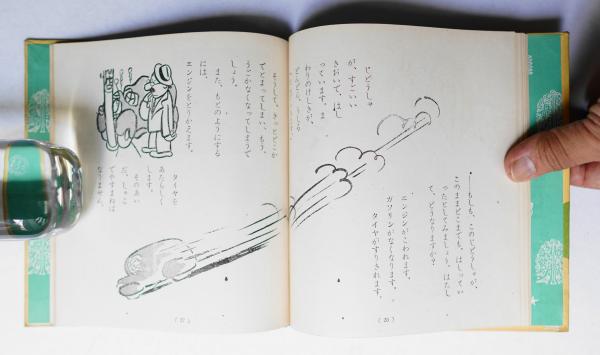 じどうしゃ
が、すごいい
きおいで、はし
っています。ま
わりのけしきが、
どんどん、うしろ
・――もしも、このじどうしゃが、
このままどこまでも、はしってい
ったとしてみましょう。はたし
て、どうなりますか？
エンジンがこわれます。
ガソリンがなくなります。
タイヤがすりきれます。
(20)
そうして、きっとどこか
でとまってしまい、もう、
うごかなくなってしまうで
しょう。
また、もとのようにする
には、
エンジンをとりかえます。
タイヤを
あたらしく
します。
そのあい
だ、しゃこ
でやすまねば
なりません。
(21)